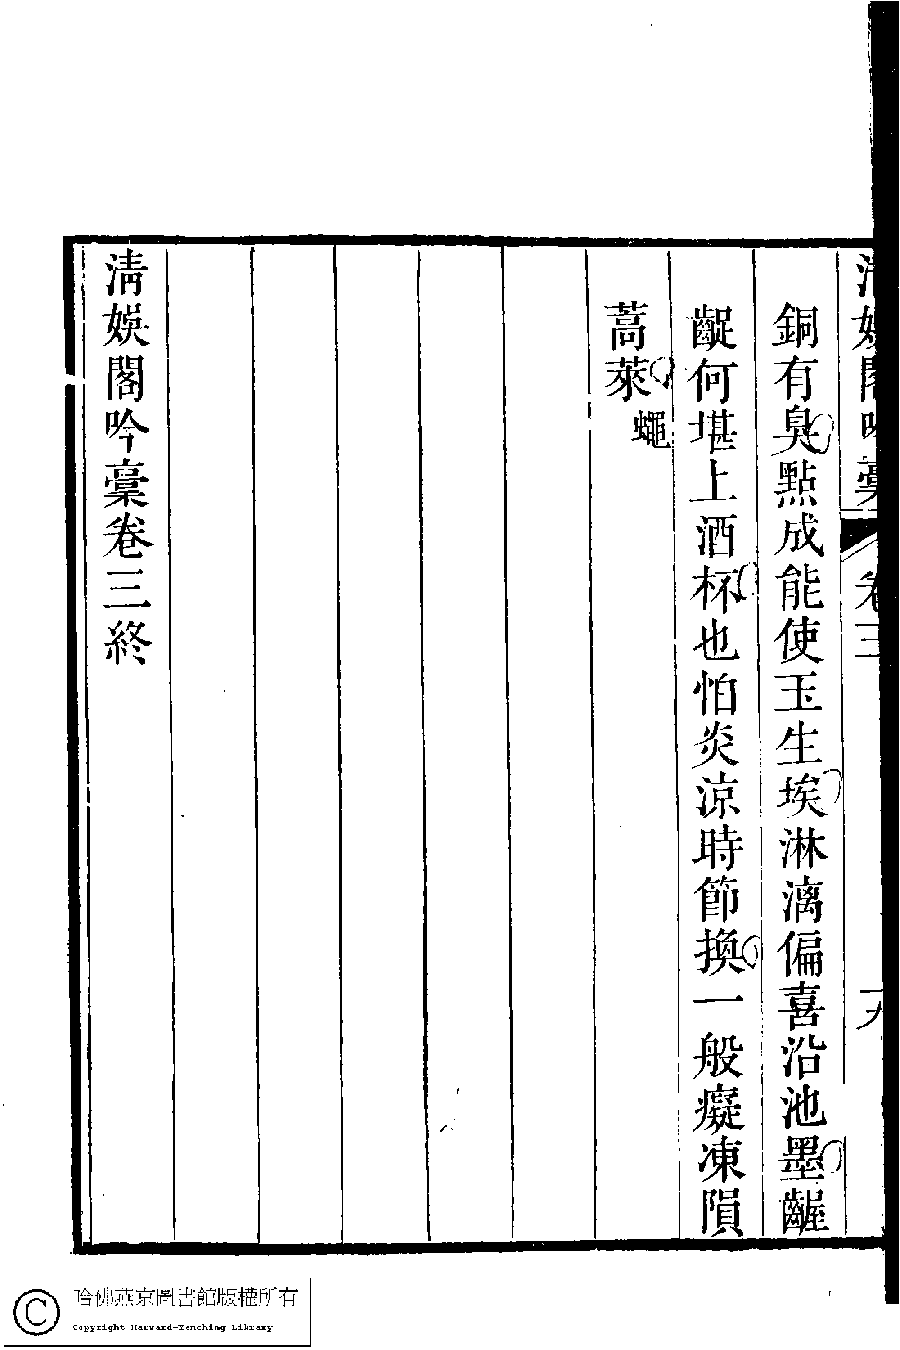 清娛閣吟稾 卷三
銅有臭點成能使玉生埃淋漓偏喜沿池墨齷
齪何堪上酒杯也怕炎涼時節換一般癡凍隕
蒿萊
蠅
清娛閣吟稾卷三終
哈佛燕京圖書館版權所有
Copyright Harvard-Yenching Library